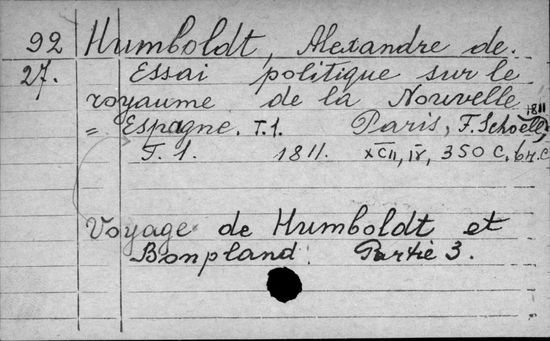 92 Humboldt, Alexandre de.
27. Essai politique sur le
royaume de la Nouvelle
= Espagne. T.1. Paris, F. Schoell, 1811
T. 1. 1811. XCII, IV, 350 C. br. C
Voyage de Humboldt et
Bonpland. Partie 3.